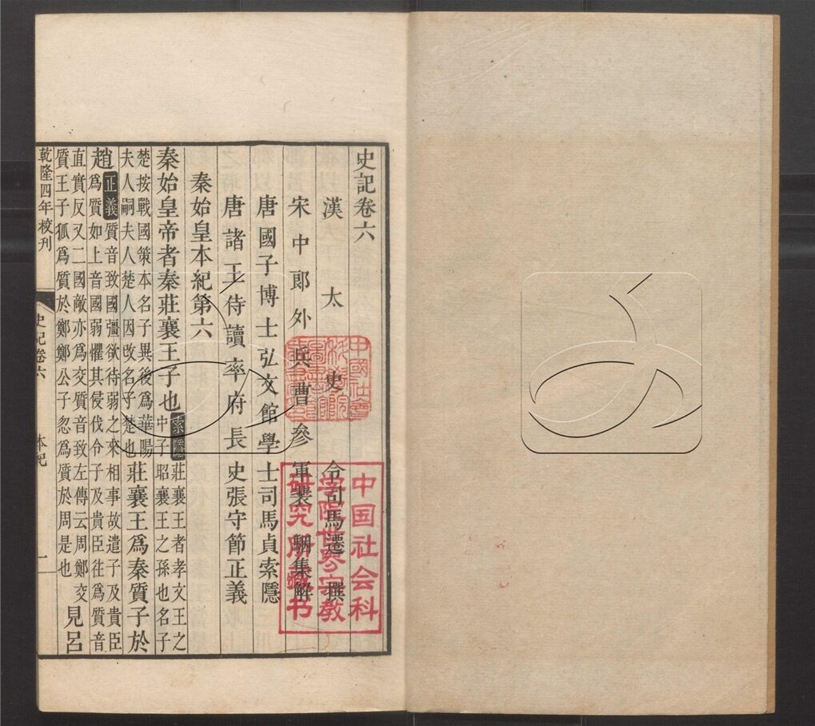 史記卷六
漢太史令司馬遷撰
宋中郎外兵曹參軍裴駰集解
唐國子博士弘文館學士司馬貞索隱
唐諸王侍讀率府長史張守節正義
秦始皇本紀第六
秦始皇帝者秦莊襄王子也索隱莊襄王者孝文王之
中子昭襄王之孫也名子
楚按戰國策本名子異後為華陽
夫人嗣夫人楚人因改名子楚也莊襄王為秦質子於
趙正義質音致國彊欲待弱之來相事故遣子及貴臣
為質如上音國弱懼其侵伐令子及貴臣往為質音
直實反又二國敵亦為交質音致左傳云周鄭交
質王子狐為質於鄭鄭公子忽為質於周是也見呂
乾隆四年校刊
史記卷六
本紀
一
中國社會
科學院
中国社会科
学院世界宗教
研究所藏书